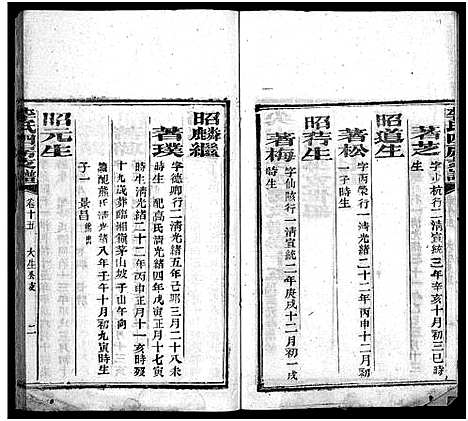 李氏四房支譜
著芝
字少杭行一清宣統三年辛亥十月初三巳時
生
昭道生
著松
字丙榮行一清光緒二十二年丙申十二月初
一子時生
昭蓉生
著梅
字仙陔行一清宣統二年庚戌十二月初一戌
時生
昭麟繼
著璞
字德卿行二清光緒五年己卯三月二十八未
時生配高氏清光緒四年戊寅正月十七寅
時生清光緒二十二年丙申正月十一亥時歿
十九歲葬臨湘嶺茅山坡子山午向
繼配熊氏清光緒八年壬午十月初九寅時生
子一 景昌 熊出
昭元生
李氏四房支譜
卷十五
大生
二